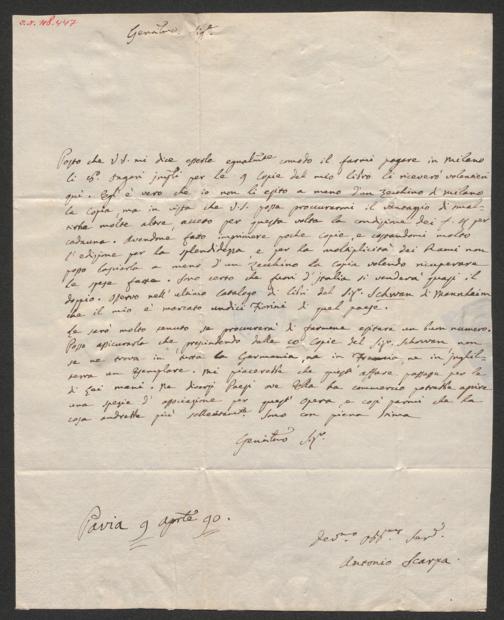 Gentilmo Sigr.
Posto che V.S. mi dice esserle egualmte comodo il farmi pagare in Milano
li per le 9 copie del mio libro li riceverò volentieri
qui. Egli è vero che io non li esito a meno d'un Zecchino di Milano
la copia, ma in vista che V.S. possa procurarmi il vantaggio di smal-
tirne molte altre, accetto per questa volta la condizione dei f.
cadauna. Avendone fatto imprimere poche copie, e costandomi molto
l'edizione per la splendidezza e per la moltiplicità dei Rami non
posso lasciarla a meno d'un Zecchino la copia volendo ricuperare
le spese fatte. Sono certo che fuori d'Italia si venderà quasi il
doppio. Osservo nell'ultimo catalogo di libri del Sigr. Schwan di Manheim
che il mio è marcato undici Fiorini di quel paese.
Le sarò molto tenuto se procurerà di farmene esitare un buon numero.
Posso assicurarla che prescindendo dalle 60 Copie del Sigr. Schwan non
se ne trova in tutta la Germania, ne in Francia, ne in Inghil-
terra un Esemplare. Mi piacerebbe che quest'affare passasse per le
di Lei mani. Ne diversi Paesi ove Ella ha commercio potrebbe aprire
una spezie d'associazione per quest'opera, e così parmi che la
cosa andrebbe più sollecitamte. Sono con piena stima
Gentilmo Sigr.
Pavia 9 Aprile 90.
Devmo Obbmo Servr.
Antonio Scarpa.